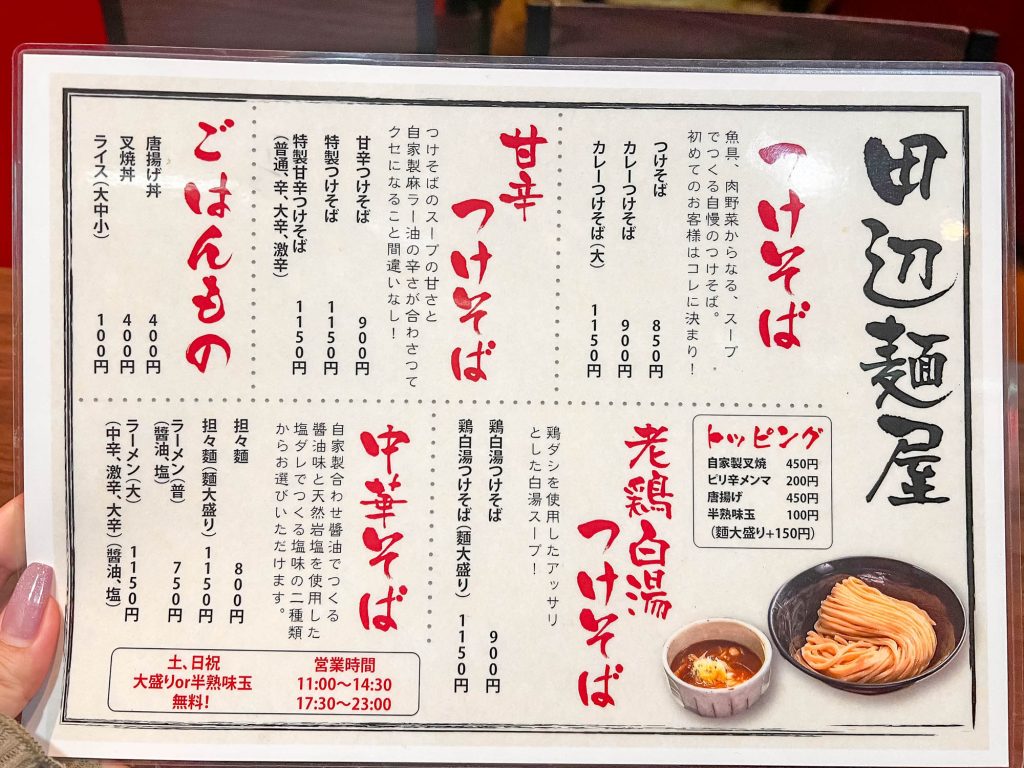 田辺麺屋
つけそば
魚具、肉野菜からなる、スープ
でつくる自慢のつけそば。
初めてのお客様はコレに決まり!
つけそば 850円
カレーつけそば 900円
カレーつけそば(大) 1150円
甘辛
つけそば
つけそばのスープの甘さと
自家製麻ラー油の辛さが合わさつて
クセになること間違いなし!
甘辛つけそば 900円
特製つけそば 1150円
特製甘辛つけそば 1150円
(普通、辛、大辛、激辛)
ごはんもの
唐揚げ丼 400円
叉焼丼 400円
ライス(大中小) 100円
トッピング
自家製叉焼 450円
ピリ辛メンマ 200円
唐揚げ 450円
半熟味玉 100円
(麺大盛り+150円)
老鶏白湯
つけそば
鶏ダシを使用したアッサリ
とした白湯スープ!
鶏白湯つけそば 900円
鶏白湯つけそば(麺大盛り) 1150円
中華そば
自家製合わせ醤油でつくる
醤油味と天然岩塩を使用した
塩ダレでつくる塩味の二種類
からお選びいただけます。
担々麺 800円
担々麺(麺大盛り) 1150円
ラーメン(普) 750円
(醤油、塩)
ラーメン(大) 1150円
(中辛、激辛、大辛)(醤油、塩)
営業時間
11:00〜14:30
17:30〜23:00
土、日祝
大盛りor半熟味玉
無料!